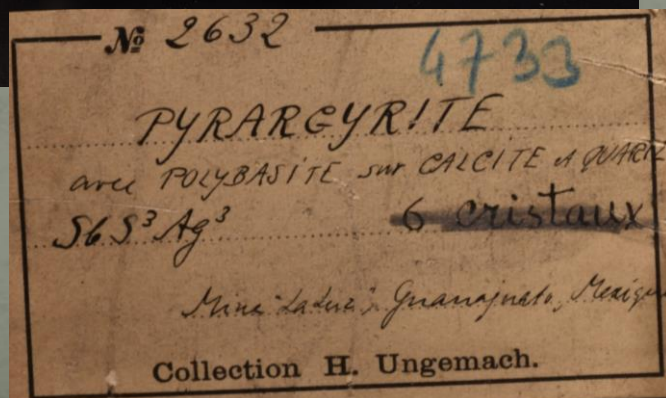 № 2632
4733
PYRARGYRITE
avec POLYBASITE sur CALCITE et QUARTZ
SbS³Ag³
6 cristaux
Mina "La Luz", Guanajuato, Mexique
Collection H. Ungemach.